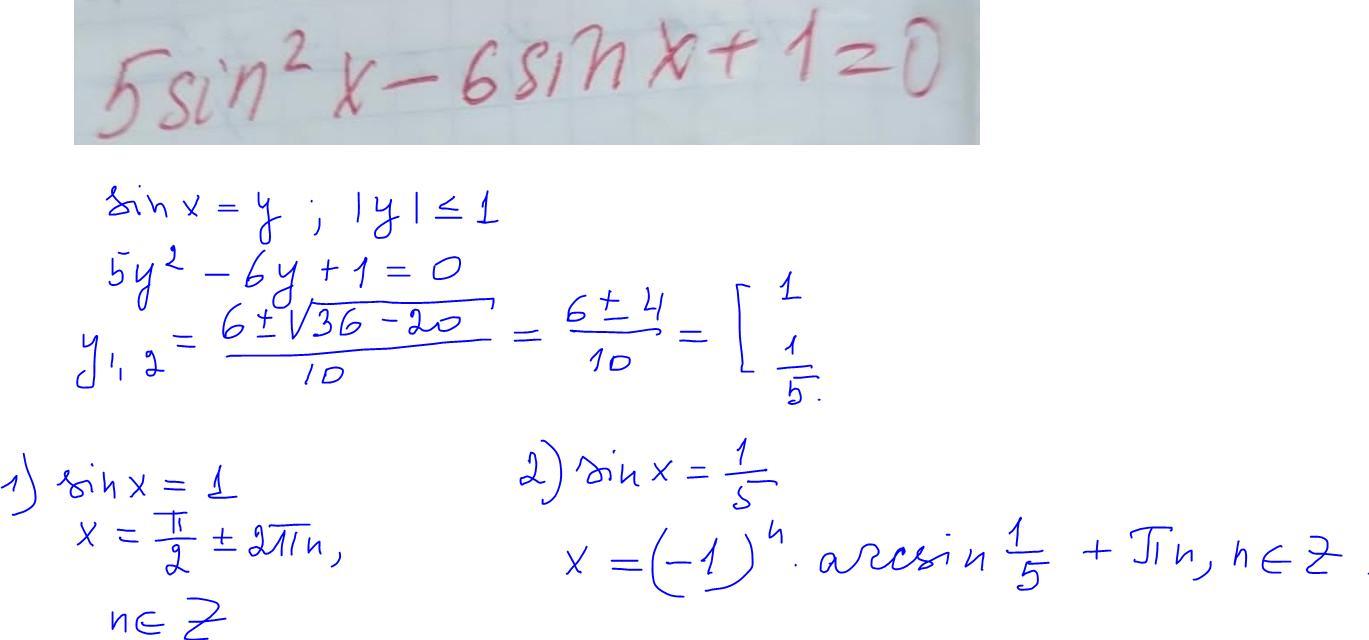 5sin² x − 6sin x + 1 = 0
sin x = y ; |y| ≤ 1
5y² − 6y + 1 = 0
y₁,₂ = (6 ± √(36 − 20))/10 = (6 ± 4)/10 = [ 1; 1/5.
1) sin x = 1
x = π/2 ± 2πn,
n ∈ Z
2) sin x = 1/5
x = (−1)ⁿ · arcsin 1/5 + πn, n ∈ Z.